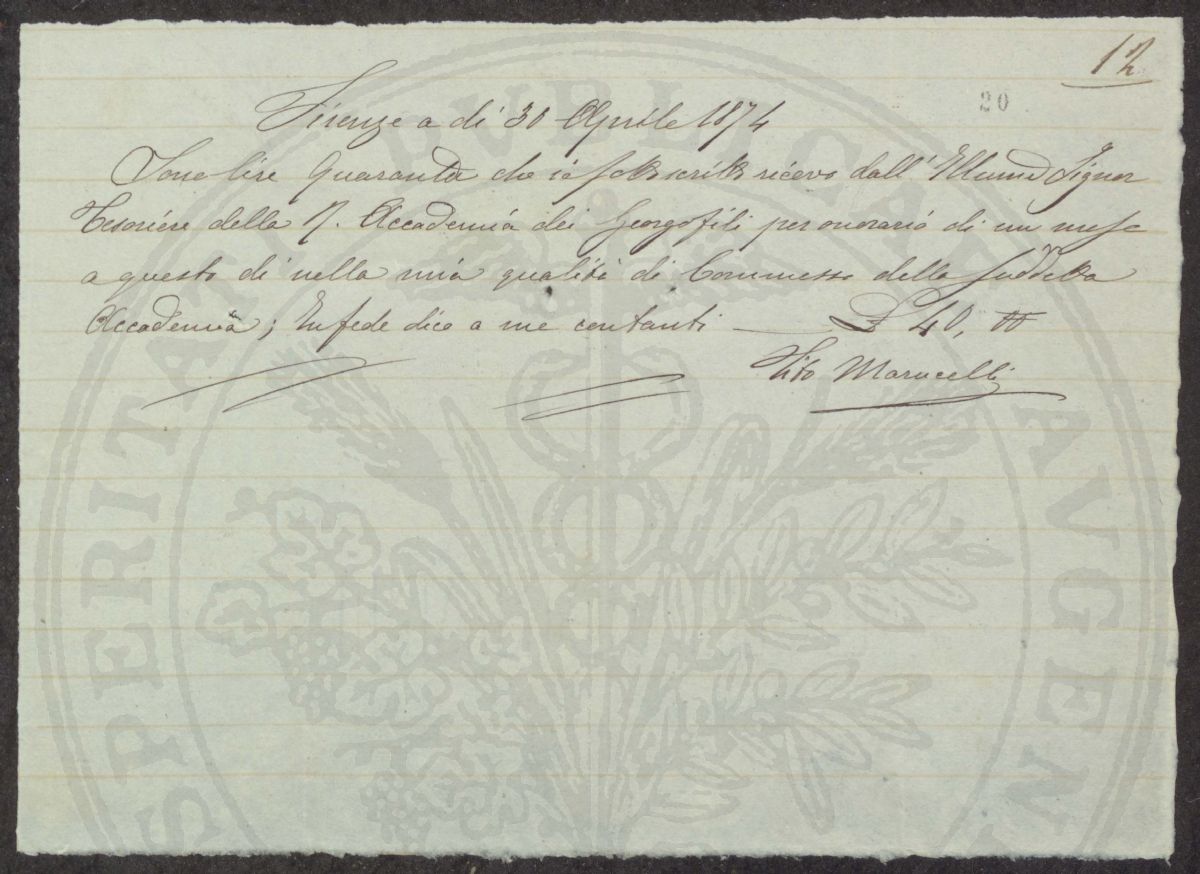 12
20
Firenze a di 30 Aprile 1874
Sono lire Quaranta che io sottoscritto ricevo dall' Illumo Signor
Tesoriere della R. Accademia dei Georgofili per onorario di un mese
a questo di nella mia qualità di Commesso della suddetta
Accademia; In fede dico a me contanti — £ 40, 00
Tito Marucelli
PUBLICAE
AUGEN
SPERITATI